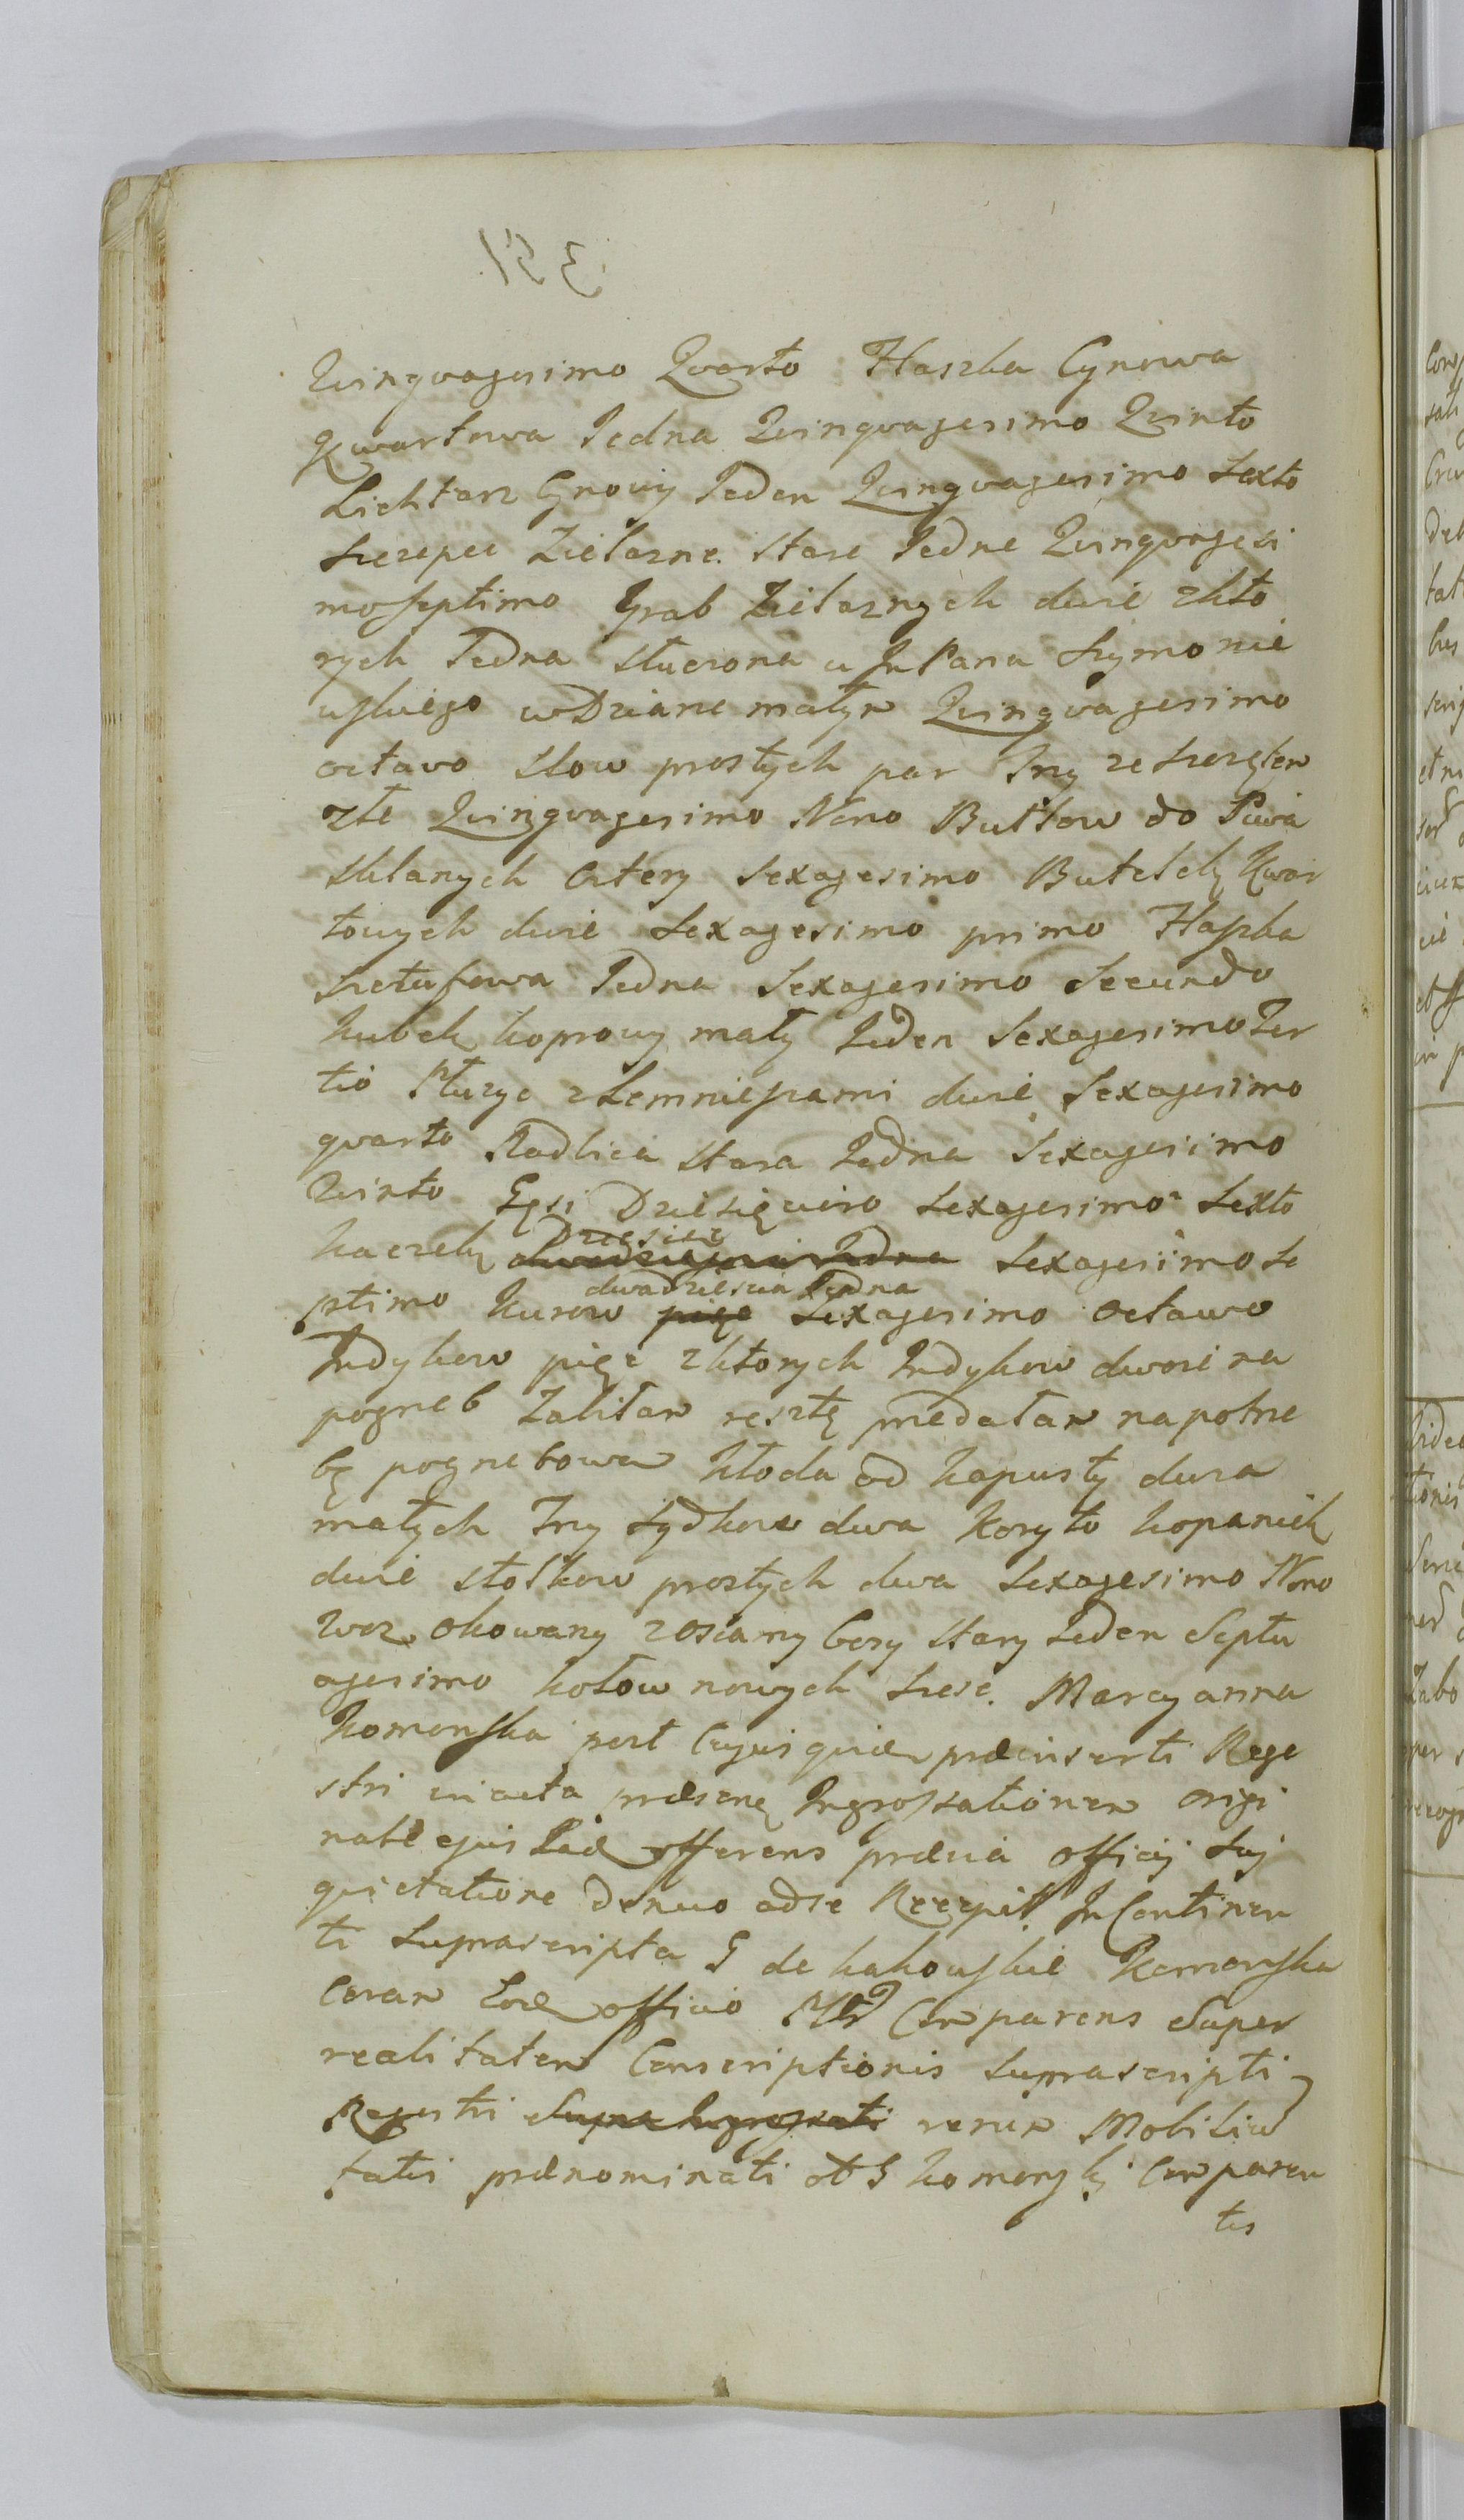 351
Qvinqvagesimo Qvarto Flaszka Cynowa
Kwartowa Jedna Qvinqvagesimo Qvinto
Lichtarz Cynowy Jeden Qvinqvagesimo Sexto
Szczepce Zielazne Stare Jedne Qvinqvagesi
mo septimo Grab Zielaznych dwie zkto
rych Jedna Stłuczona u Jm Pana Szymonie
wskiego w Dzianem małym Qvinqvagesimo
octavo Słow prostych par Trzy ze
złe Qvinqvagesimo Nono Butlow do Piwa
Sklanych Cztery Sexagesimo Butelek Kwar
towych dwie Sexagesimo primo Flaszka
Jedna Sexagesimo Secundo
Kubek koprowy mały Jeden Sexagesimo Ter
tio Płuzyc zLemnieszami dwie Sexagesimo
qvarto Radlica Stara Jedna Sexagesimo
Qvinto Gęsi Dziesięcioro Sexagesimo Sexto
Dziesięc
Kaczek dwadziescia Jedna Sexagesimo Se
dwadziescia Jedna
ptimo Kurow pięc Sexagesimo octavo
Indykow pięc zktorych Indykow dwoie na
pogrzeb Zabiłam resztę przedałam na potrze
bę pogrzebowa Kłoda od kapusty duza
małych Trzy Sądkow dwa Koryto kopaniek
dwie stołkow prostych dwa Sexagesimo Nono
Woz okowany zosiamy Bosy Stary Jeden Septu
agesimo kołow nowych Szesc. Maryanna
Komorska post Cujusquidem praeinserti Rege
stri in acta praesens Ingrossationem origi
nale ejus Idem offerens praevia officij Sui
quietatione denuo ad se Recepit In Continen
ti Suprascripta G de Kakowskie Komorska
Coram Eodem officio Ptti Comparens Super
realitatem Conscriptionis Suprascripti
Regestri Supra Ingrossati rerum Mobilium
fatti praenominati olt G Komorski Comparen
tis